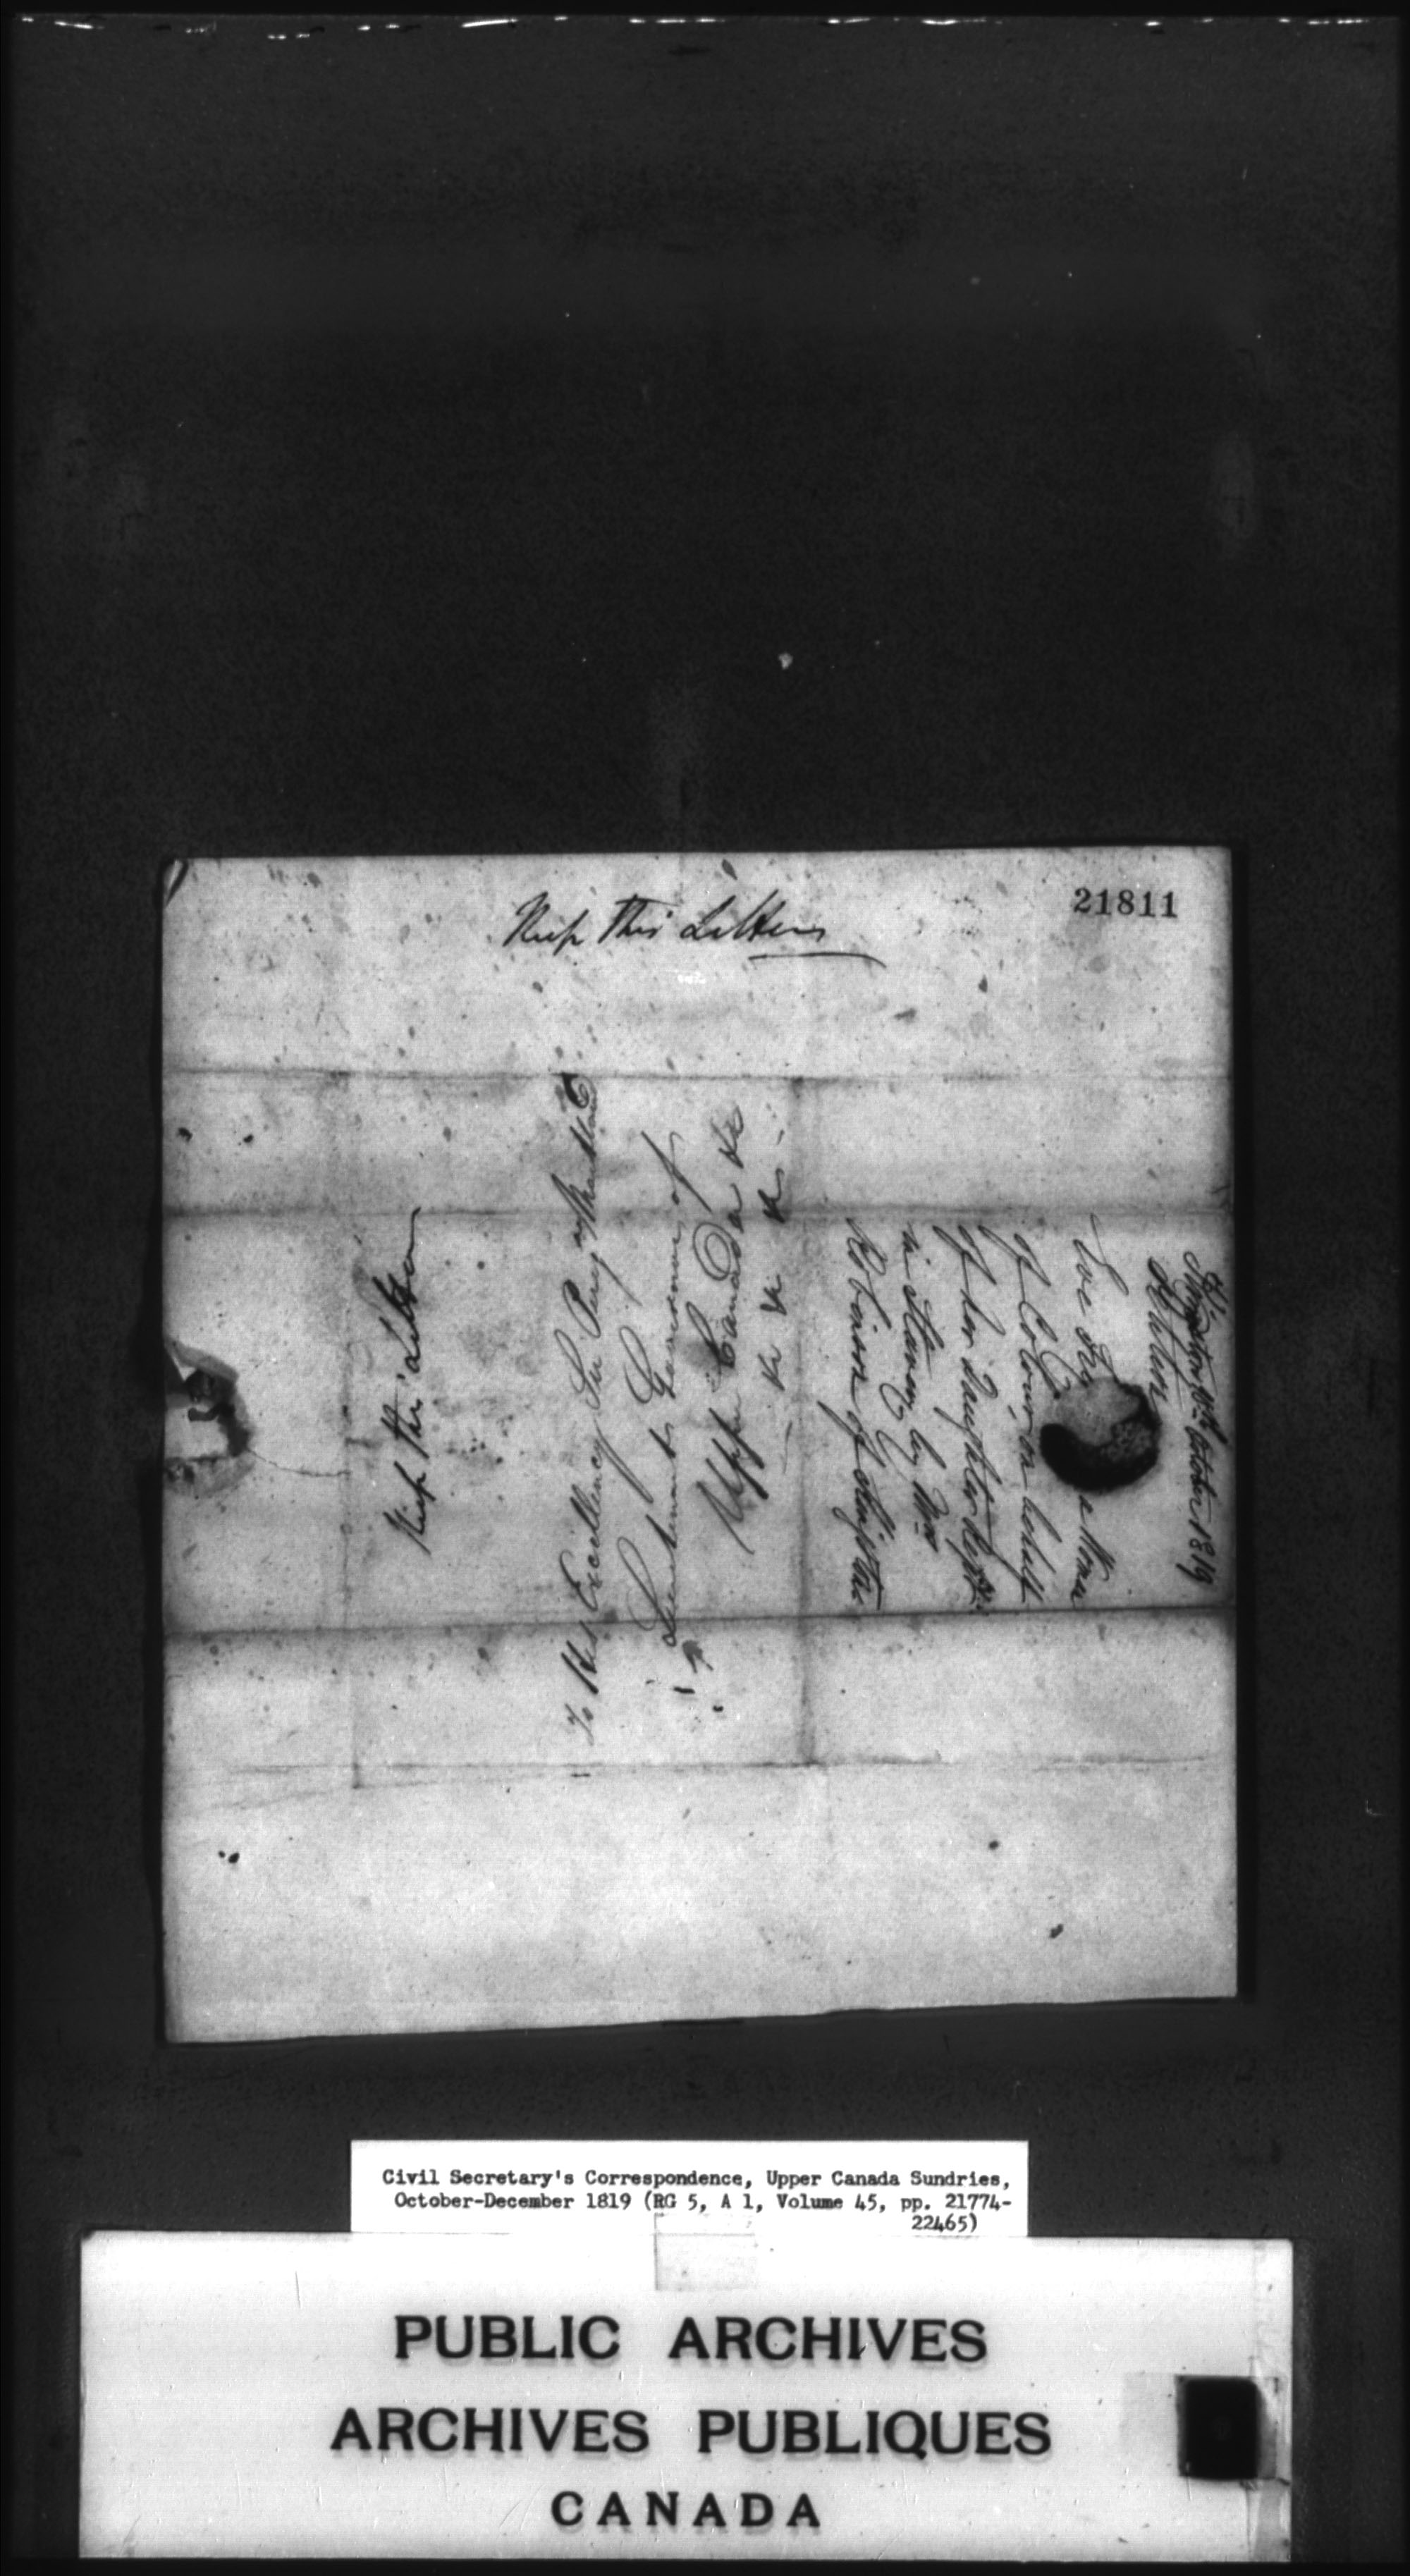 21811
Keep this Letter
Keep this Letter
To His Excellency Sir Peregrine Maitland
Lieutenant Governor of
Upper Canada &c
&c &c &c
Kingston Octobr 1819
Petition
a Woman
of Colour, on behalf
of her Daughter kept
in Slavery by Mr
Robinson of
Civil Secretary's Correspondence, Upper Canada Sundries,
October-December 1819 (RG 5, A 1, Volume 45, pp. 21774-
22465)
PUBLIC ARCHIVES
ARCHIVES PUBLIQUES
CANADA